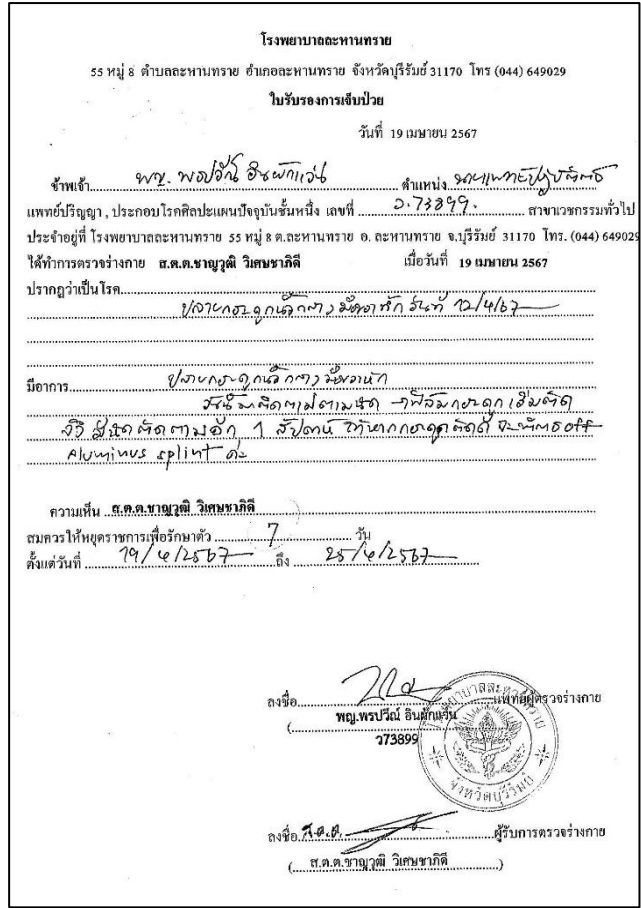 โรงพยาบาลละหานทราย
55 หมู่ 8 ตำบลละหานทราย อำเภอละหานทราย จังหวัดบุรีรัมย์ 31170 โทร (044) 649029
ใบรับรองการเจ็บป่วย
วันที่ 19 เมษายน 2567
ข้าพเจ้า พญ. พรปวีณ์ อินผักแว่น ตำแหน่ง นายแพทย์ปฏิบัติการ
แพทย์ปริญญา , ประกอบโรคศิลปะแผนปัจจุบันชั้นหนึ่ง เลขที่ ว.73899. สาขาเวชกรรมทั่วไป
ประจำอยู่ที่ โรงพยาบาลละหานทราย 55 หมู่ 8 ต.ละหานทราย อ. ละหานทราย จ.บุรีรัมย์ 31170 โทร. (044) 649029
ได้ทำการตรวจร่างกาย ส.ต.ต.ชาญวุฒิ วิเศษชาภิดี เมื่อวันที่ 19 เมษายน 2567
ปรากฏว่าเป็นโรค
ปลายกระดูกนิ้วกลางมือขวาหัก วันที่ 12/4/67
มีอาการ ปลายกระดูกนิ้วกลางมือขวาหัก
วันนี้มาติดตามตามนัด กระดูกเริ่มติด
นัดติดตามอีก 1 สัปดาห์ ถ้าหากกระดูกติดดี จะพิจารณา off
Aluminus splint ค่ะ
ความเห็น ส.ต.ต.ชาญวุฒิ วิเศษชาภิดี
สมควรให้หยุดราชการเพื่อรักษาตัว 7 วัน
ตั้งแต่วันที่ 19/4/2567 ถึง 25/4/2567
ลงชื่อ แพทย์ผู้ตรวจร่างกาย
( พญ.พรปวีณ์ อินผักแว่น
ว73899
โรงพยาบาลละหานทราย
จังหวัดบุรีรัมย์
ลงชื่อ ส.ต.ต. ผู้รับการตรวจร่างกาย
( ส.ต.ต.ชาญวุฒิ วิเศษชาภิดี )